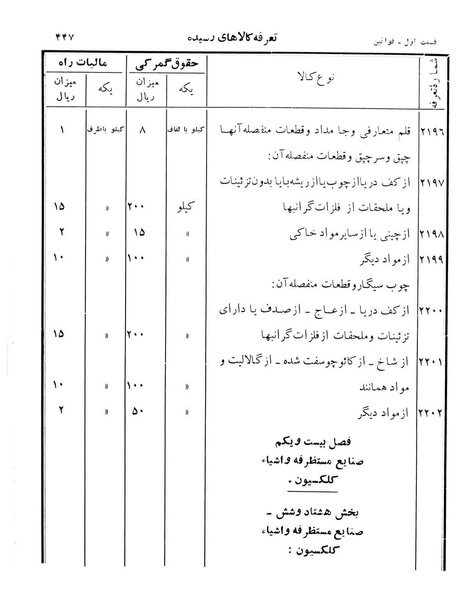 قسمت اول ـ قوانین تعرفه کالاهای رسیده ۴۴۷
شماره تعرفه نوع کالا حقوق گمرکی مالیات راه
یکه میزان ریال یکه میزان ریال
۲۱۹۶ قلم متعارفی وجا مداد و قطعات منفصله آنها کیلو با لفاف ۸ کیلو باظرف ۱
چپق وسرچپق وقطعات منفصله آن:
۲۱۹۷ از کف دریا از چوب یا از ریشه با یا بدون تزئینات
ویا ملحقات از فلزات گرانبها کیلو ۲۰۰ » ۱۵
۲۱۹۸ از چینی یا از سایر مواد خاکی » ۱۵ » ۲
۲۱۹۹ از مواد دیگر » ۱۰۰ » ۱۰
چوب سیگار وقطعات منفصله آن:
۲۲۰۰ از کف دریا ـ از عاج ـ از صدف یا دارای
تزئینات وملحقات از فلزات گرانبها » ۲۰۰ » ۱۵
۲۲۰۱ از شاخ ـ از کائوچو سفت شده ـ از گالالیت و
مواد همانند » ۱۰۰ » ۱۰
۲۲۰۲ از مواد دیگر » ۵۰ » ۲
فصل بیست ویکم
صنایع مستظرفه واشیاء
کلکسیون .
بخش هشتاد وشش ـ
صنایع مستظرفه واشیاء
کلکسیون :